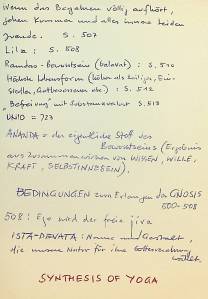 Wenn das Begehren völlig aufhört,
gehen Kummer und alles innere Leiden
zuende. S. 507
Lila: S. 508
- Bewusstsein (balavat): S. 510
Höchste Lebensform (höher als Heilige, Ein-
siedler, Gottesmenschen etc.) S. 512
"Befreiung" mit S. 513
UND = 723
ANANDA = der eigentliche Stoff des
Bewusstseins (Ergebnis
aus Zusammenwirken von WISSEN, WILLE,
KRAFT, SELBSTINNESEIN).
BEDINGUNGEN zum Erlangen der GNOSIS
500-508
508: Ego wird der freie jiva
ISTA-DEVATA: Name und Gestalt,
die unsere Natur für ihre
wählt.
SYNTHESIS OF YOGA